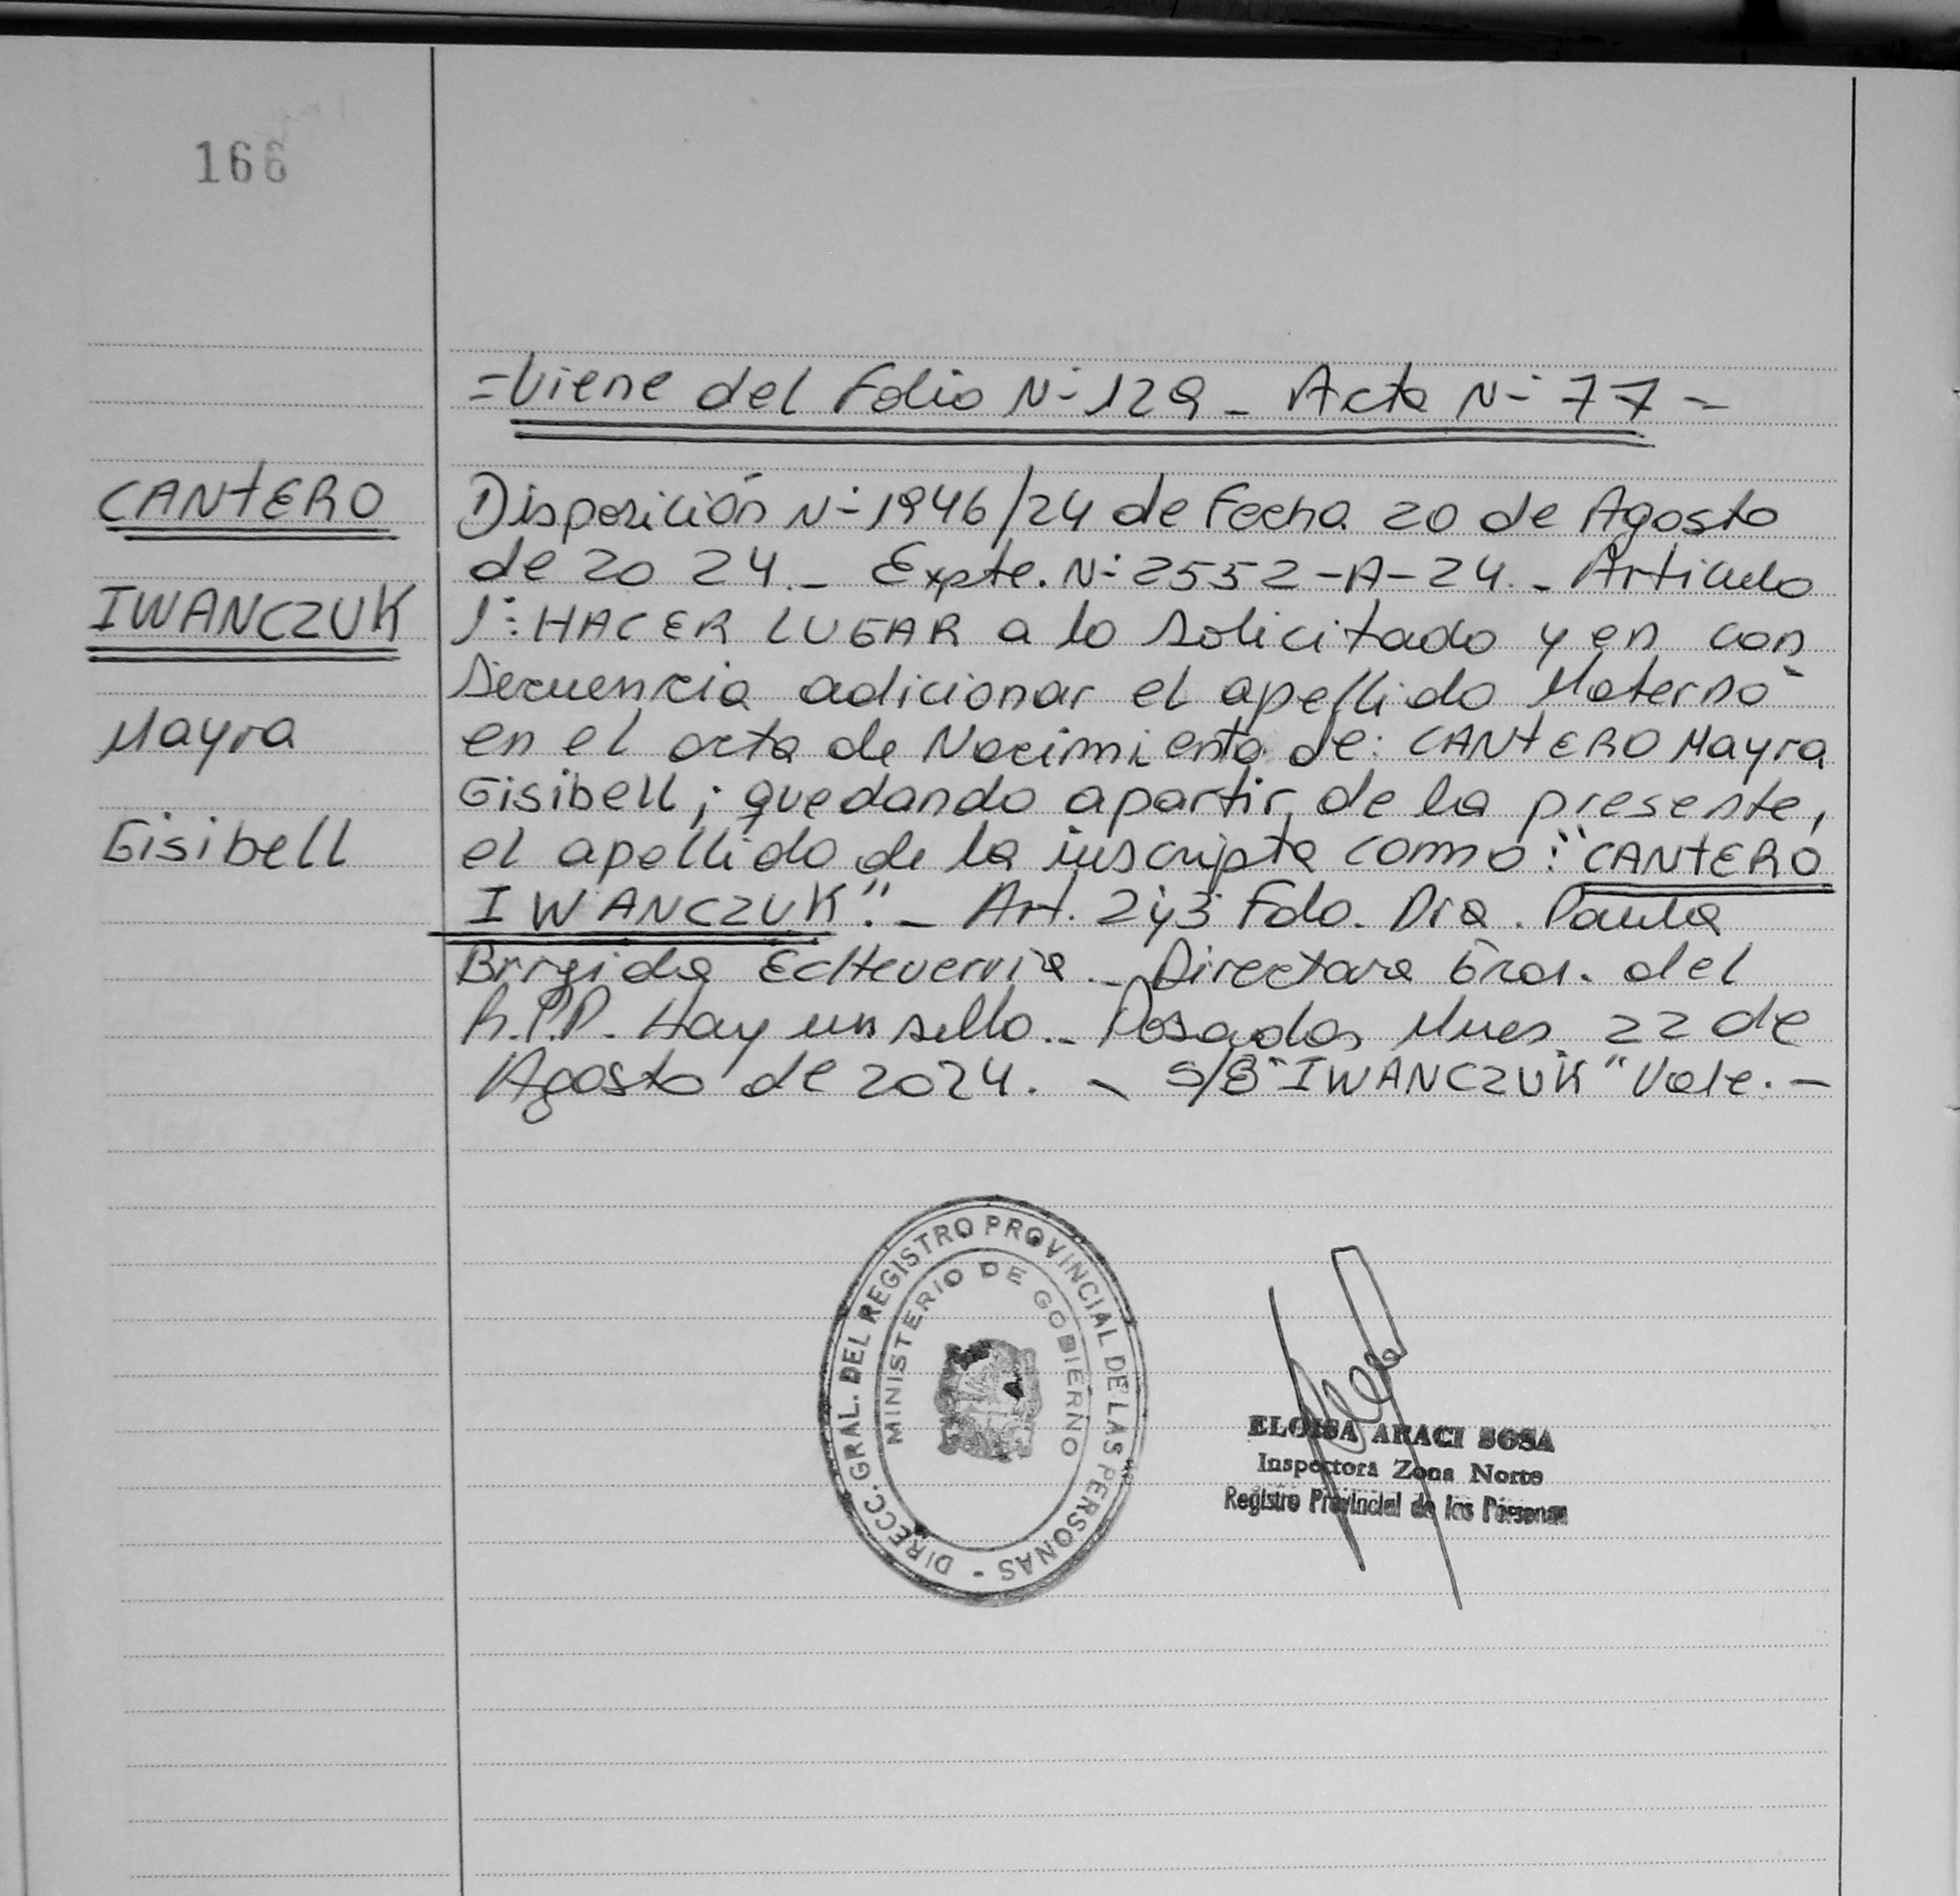 166
=Viene del Folio N-129 - Acta N- 77 =
CANTERO
IWANCZUK
Mayra
Gisibell
Disposición N-1946/24 de Fecha 20 de Agosto
de 2024.- Expte. N: 2552-A-24.- Articulo
1: HACER LUGAR a lo solicitado y en con
secuencia adicionar el apellido Materno
en el acta de Nacimiento de: CANTERO Mayra
Gisibell; quedando apartir de la presente,
el apellido de la inscripta como: "CANTERO
IWANCZUK".- Art. 2y3 Fdo. Dra. Paula
Brigida Echeverria - Directora Gral. del
R.P.P. Hay un sello.- Posadas, Mnes. 22 de
Agosto de 2024. - S/B "IWANCZUK" Vale.-
DIRECC. GRAL. DEL REGISTRO PROVINCIAL DE LAS PERSONAS -
MINISTERIO DE GOBIERNO
ELOISA ARACI SOSA
Inspectora Zona Norte
Registro Provincial de las Personas